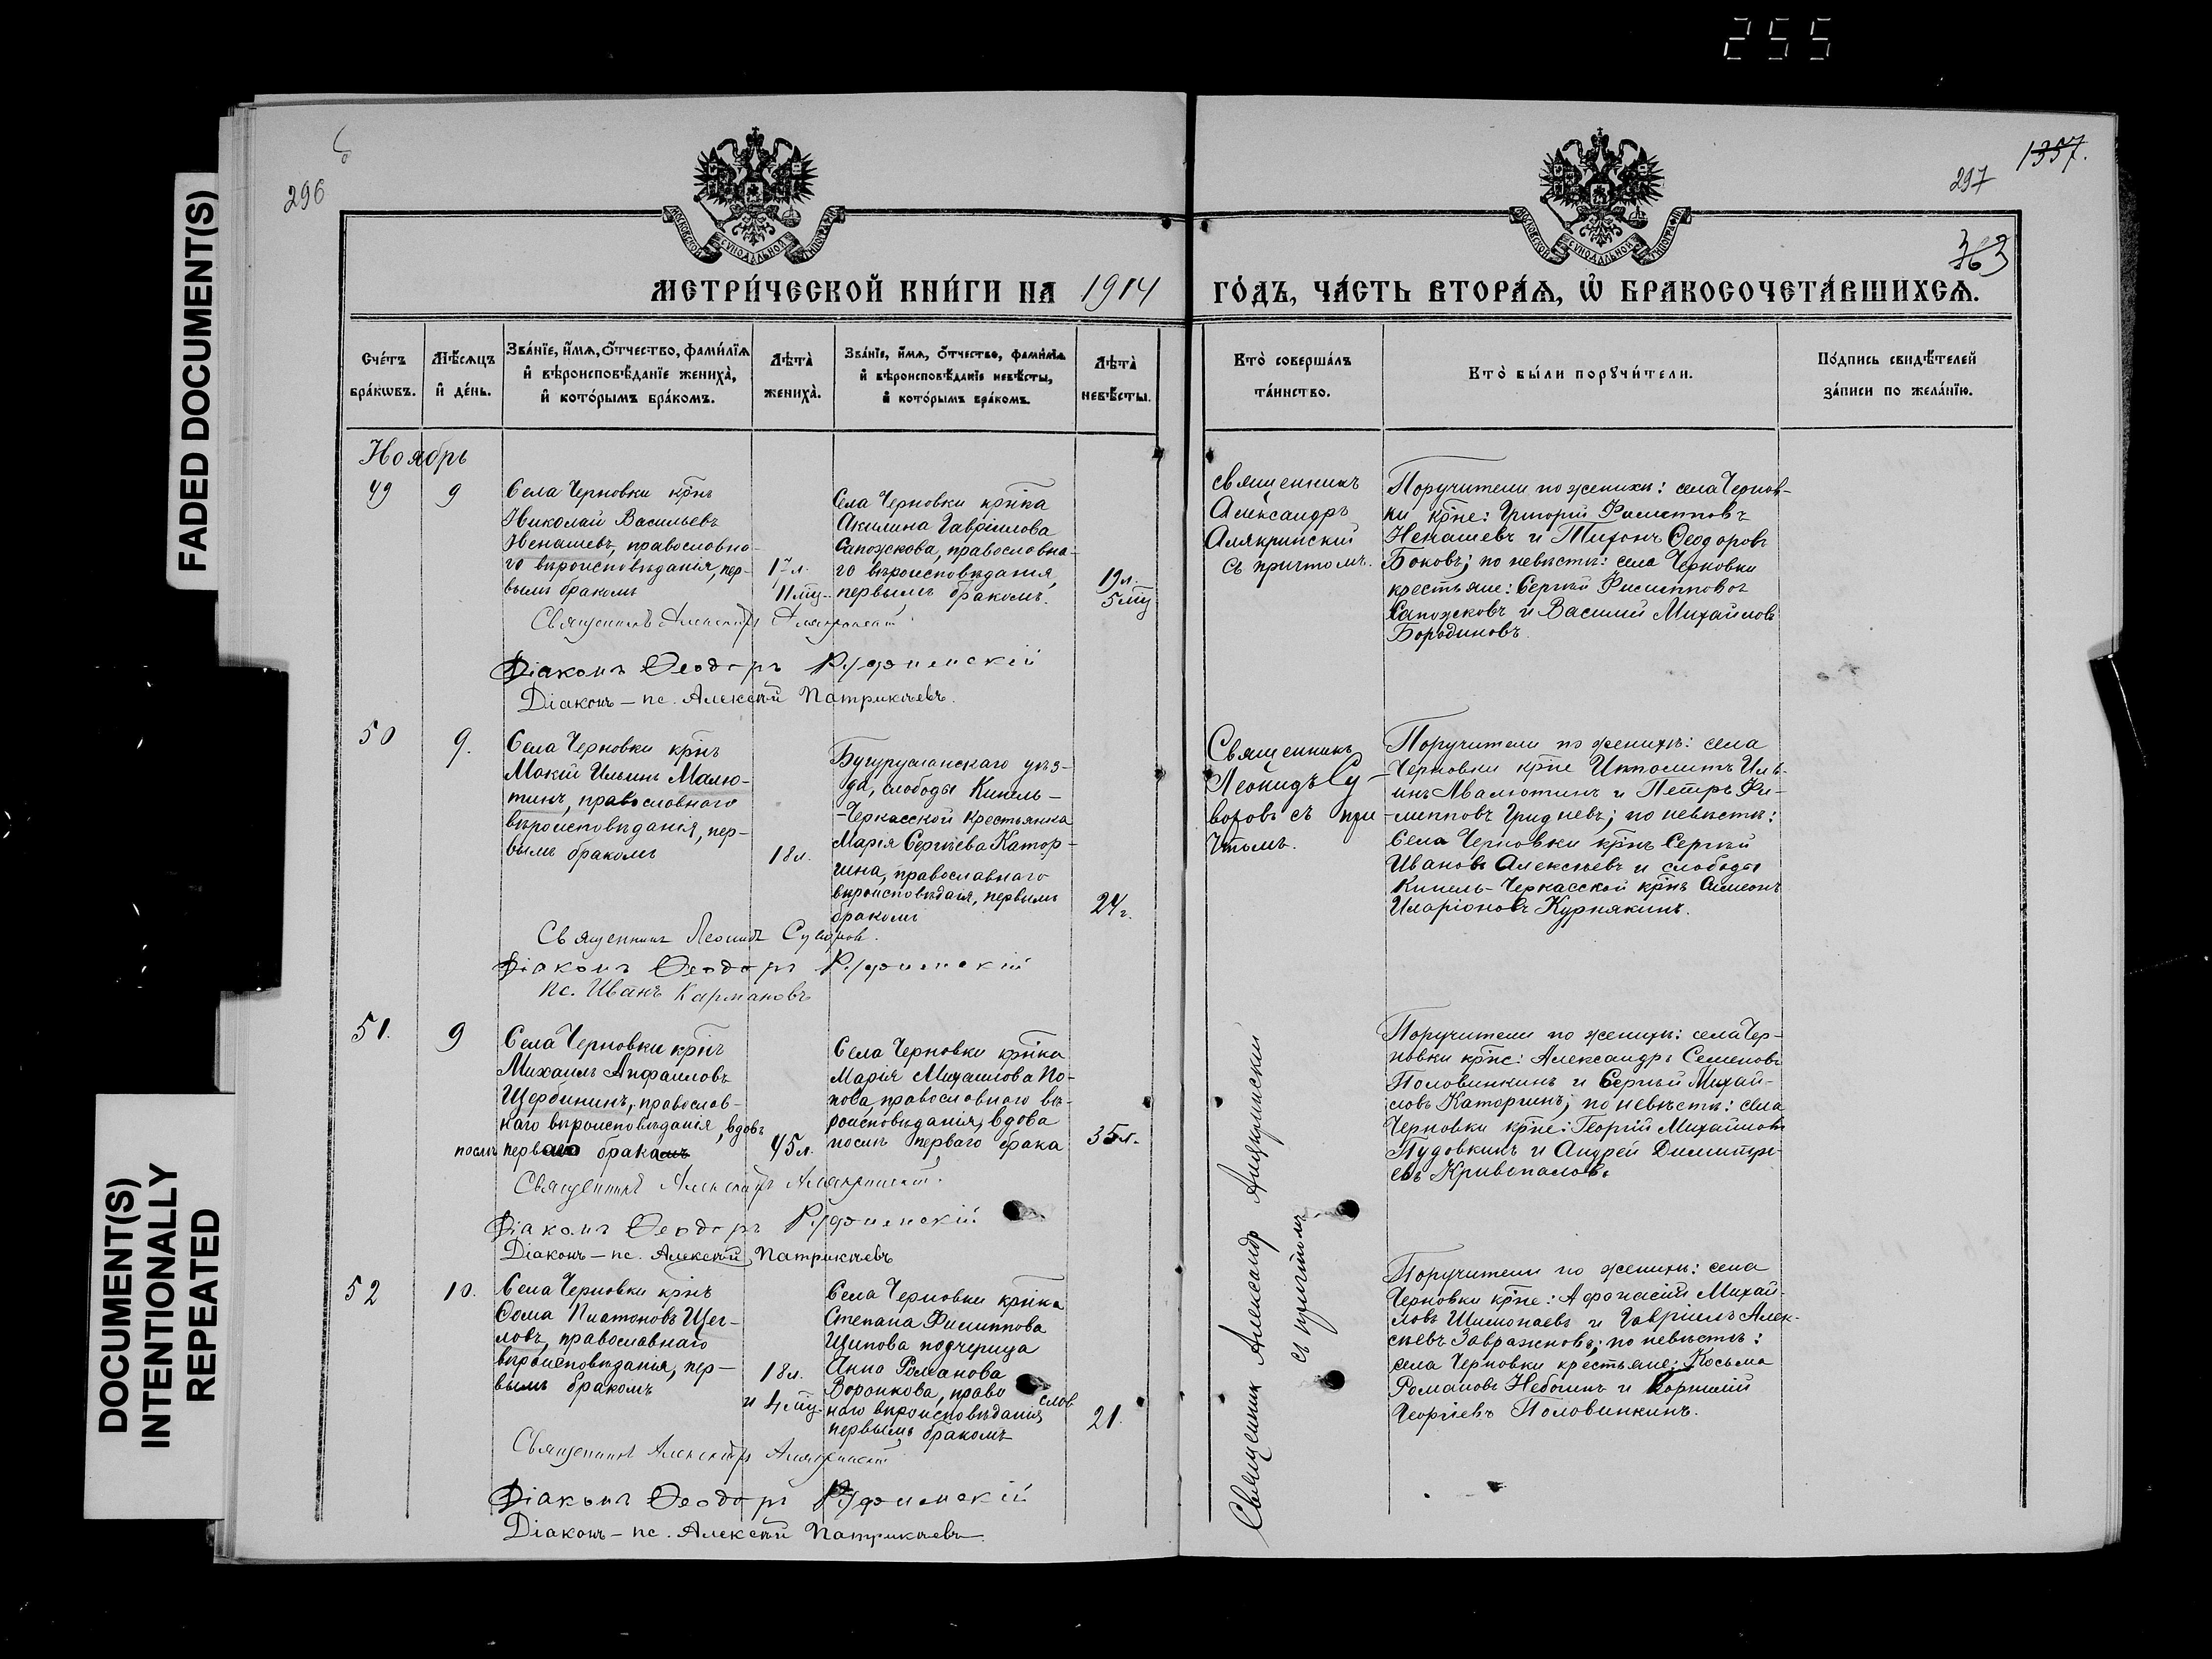 255
FADED DOCUMENT(S)
DOCUMENT(S)
INTENTIONALLY
REPEATED
296
297
1357.
363
МОСКОВСКОЙ СѴНОДАЛЬНОЙ ТИПОГРАФІИ
МОСКОВСКОЙ СѴНОДАЛЬНОЙ ТИПОГРАФІИ
МЕТРИ́ЧЕСКОЙ КНИ́ГИ НА 1914 ГО́ДЪ, ЧА́СТЬ ВТОРА́Ѧ, Ѽ БРАКОСОЧЕТА́ВШИХСѦ.
Сче́тъ
бра́кѡвъ.
Мѣ́сѧцъ
и҆ де́нь.
Зва́нїе, и҆́мѧ, о҆́тчество, фами́лїѧ
и҆ вѣроисповѣ́данїе жениха̀,
и҆ кото́рымъ бра́комъ.
Лѣта̀
жениха̀.
Зва́нїе, и҆́мѧ, о҆́тчество, фами́лїѧ
и҆ вѣроисповѣ́данїе невѣ́сты,
и҆ кото́рымъ бра́комъ.
Лѣта̀
невѣ́сты.
Кто̀ соверша́лъ
та́инство.
Кто̀ бы́ли порꙋчи́тели.
По́дпись свидѣ́телей
за́писи по жела́нїю.
Ноябрь
49
9
Села Черновки крнъ
Николай Васильевъ
Ненашевъ, православно-
го вѣроисповѣданія, пер-
вымъ бракомъ
17 л.
11 мц.
Села Черновки крнка
Акилина Гавріилова
Сапожкова, православна-
го вѣроисповѣданія,
первымъ бракомъ.
19 л.
5 мц
священникъ
Александръ
Алякринскій
съ причтомъ.
Поручители по женихѣ: села Чернов-
ки крне: Григорій Филипповъ
Ненашевъ и Тихонъ Ѳеодоровъ
Боковъ; по невѣстѣ: села Черновки
крестьяне: Сергѣй Филипповъ
Сапожковъ и Василій Михайловъ
Бородиновъ.
Священникъ Александръ Алякринскій
Діаконъ Ѳеодоръ Руфимскій
Діаконъ – пс. Алексѣй Патрикѣевъ.
50
9.
Села Черновки крнъ
Мокій Ильинъ Малю-
тинъ, православного
вѣроисповѣданія, пер-
вымъ бракомъ
18 л.
Бугурусланскаго уѣз-
да, слободы Кинель-
-Черкасской крестьянка
Марія Сергѣева Катор-
гина, православнаго
вѣроисповѣдаія, первымъ
бракомъ
24 г.
Священникъ
Леонидъ Су-
воровъ съ при-
чтомъ.
Поручители по женихѣ: села
Черновки крне Ипполитъ Иль-
инъ Малютинъ и Петръ Фи-
липповъ Гридневъ; по невѣстѣ:
Села Черновки крнъ Сергѣй
Ивановъ Алексѣевъ и слободы
Кинель-Черкасской крнъ Симеонъ
Иларіоновъ Курнякинъ.
Священникъ Леонидъ Суворов.
Діаконъ Ѳеодоръ Руфимскій
пс. Иванъ Кармановъ
51.
9
Села Черновки крнъ
Михаилъ Анфаиловъ
Щербининъ, православ-
наго вѣроисповѣданія, вдовъ
послѣ перваго брака
45 л.
Села Черновки крнка
Марія Михаилова По-
пова православного вѣ-
роисповѣданія, вдова
послѣ перваго брака
35 л.
Поручители по женихѣ: села Чер-
новки крне: Александръ Семеновъ
Половинкинъ и Сергѣй Михай-
ловъ Каторгинъ; по невѣстѣ: села
Черновки крне: Георгій Михайловъ
Пудовкинъ и Андрей Димитрі-
евъ Кривопаловъ.
Священникъ Александръ Алякринскій.
Діаконъ Ѳеодоръ Руфимскій
Діаконъ – пс. Алексѣй Патрикѣевъ
Священник Александр Алякринскій
съ причтомъ
52
10.
Села Черновки крнъ
Ѳома Платоновъ Щег-
ловъ, православнаго
вѣроисповѣданія, пер-
вымъ бракомъ
18 л.
и 4 мц.
Села Черновки крнка
Степана Филиппова
Шипова подчерица
Анна Романова
Воронкова, право слов
наго вѣроисповѣданія
первымъ бракомъ
21.
Поручители по женихѣ: села
Черновки крне: Афанасій Михай-
ловъ и Гавріилъ Алек-
сѣевъ Завражновъ; по невѣстѣ:
села Черновки крестьяне: Косьма
Романовъ и Корнилій
Георгіевъ Половинкинъ.
Священникъ Александръ Алякринскій
Діаконъ Ѳеодоръ Руфимскій
Діаконъ – пс. Алексѣй Патрикѣевъ